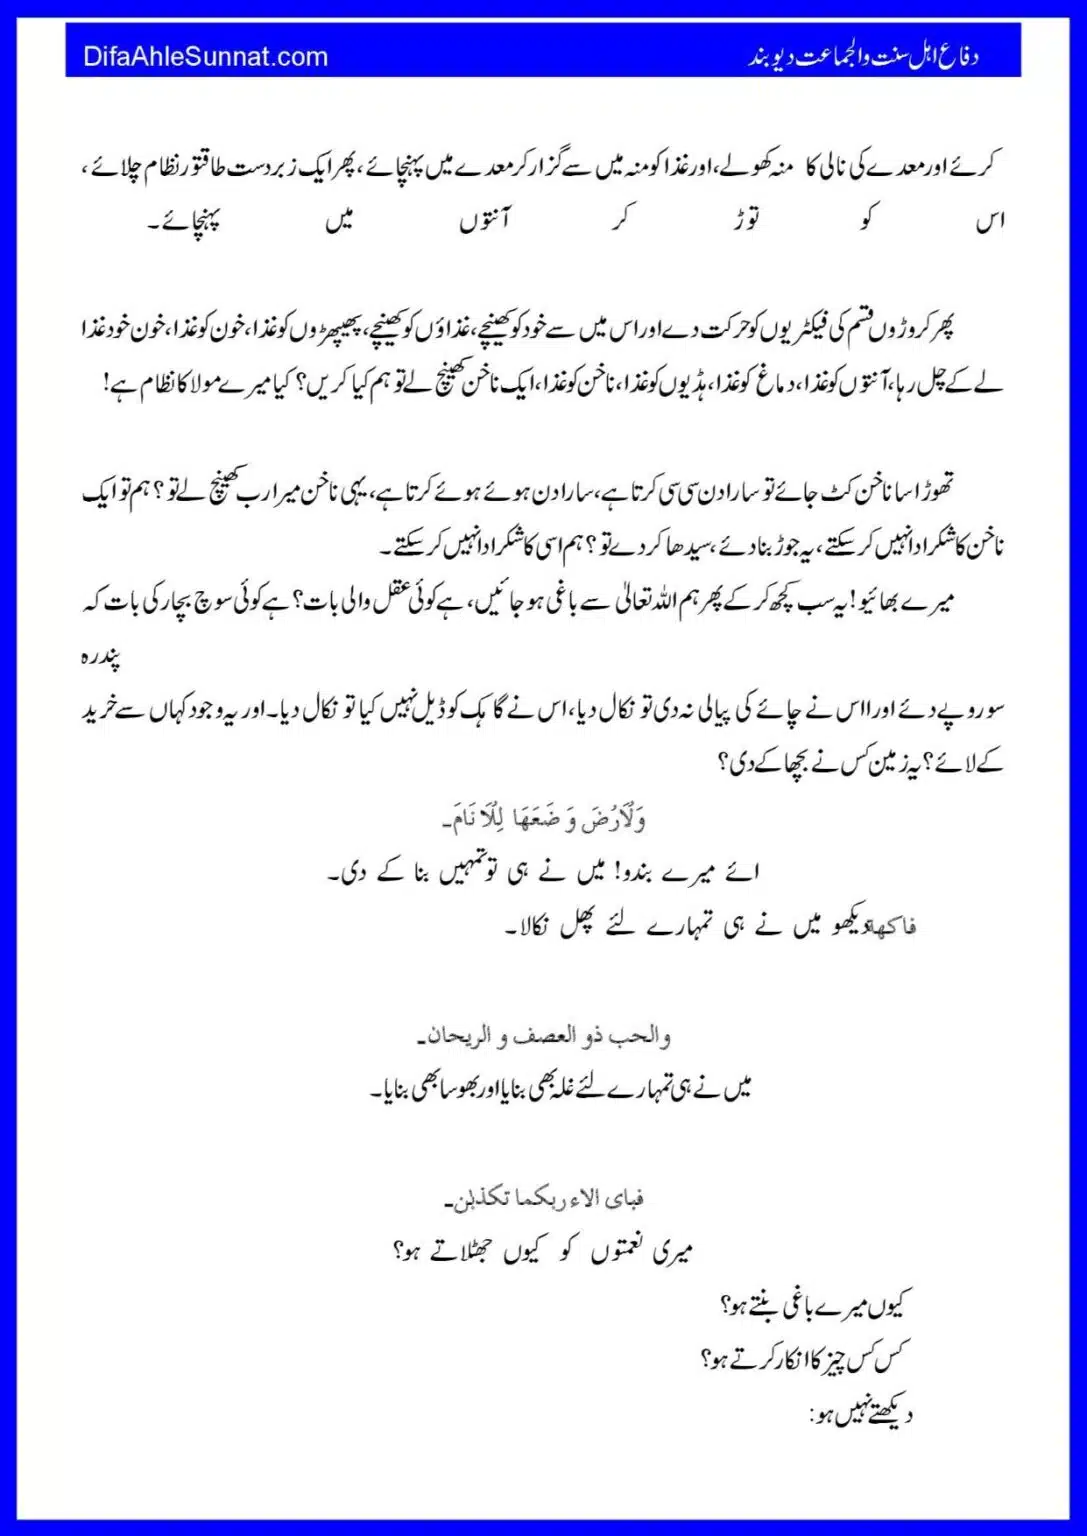 DifaAhleSunnat.com
دفاع اہل سنت والجماعت دیوبند
کرئے اور معدے کی نالی کا منہ کھولے، اور غذا کو منہ میں سے گزار کر معدے میں پہنچائے، پھر ایک زبردست طاقتور نظام چلائے،
اس کو توڑ کر آنتوں میں پہنچائے۔
پھر کروڑوں قسم کی فیکٹریوں کو حرکت دے اور اس میں سے خود کو کھینچے، غذاؤں کو کھینچے، پھیپھڑوں کو غذا، خون کو غذا، خون خود غذا
لے کے چل رہا، آنتوں کو غذا، دماغ کو غذا، ہڈیوں کو غذا، ناخن کو غذا، ایک ناخن کھینچ لے تو ہم کیا کریں؟ کیا میرے مولا کا نظام ہے!
تھوڑا سا ناخن کٹ جائے تو سارا دن سی سی کرتا ہے، سارا دن ہوئے ہوئے کرتا ہے، یہی ناخن میرا رب کھینچ لے تو؟ ہم تو ایک
ناخن کا شکر ادا نہیں کر سکتے، یہ جوڑ بنا دئے، سیدھا کر دے تو؟ ہم اسی کا شکر ادا نہیں کر سکتے۔
میرے بھائیو! یہ سب کچھ کر کے پھر ہم اللہ تعالیٰ سے باغی ہو جائیں، ہے کوئی عقل والی بات؟ ہے کوئی سوچ بچار کی بات کہ
پندرہ
سو روپے دئے اور ااس نے چائے کی پیالی نہ دی تو نکال دیا، اس نے گاہک کو ڈیل نہیں کیا تو نکال دیا۔ اور یہ وجود کہاں سے خرید
کے لائے؟ یہ زمین کس نے بچھا کے دی؟
وَلْاَرْضَ وَ ضَعَهَا لِلْاَ نَامَ۔
ائے میرے بندو! میں نے ہی تو تمہیں بنا کے دی۔
فاکھۃ دیکھو میں نے ہی تمہارے لئے پھل نکالا۔
والحب ذو العصف و الریحان۔
میں نے ہی تمہارے لئے غلہ بھی بنایا اور بھوسا بھی بنایا۔
فبای الاء ربکما تکذبٰن۔
میری نعمتوں کو کیوں جھٹلاتے ہو؟
کیوں میرے باغی بنتے ہو؟
کس کس چیز کا انکار کرتے ہو؟
دیکھتے نہیں ہو: